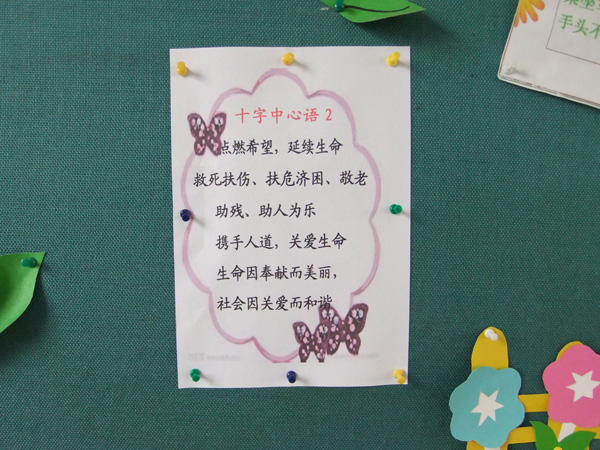 十字中心语 2
点燃希望，延续生命
救死扶伤、扶危济困、敬老
助残、助人为乐
携手人道，关爱生命
生命因奉献而美丽，
社会因关爱而和谐
手头不